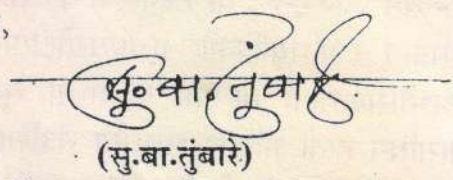 सु. बा. तुंबारे.
(सु.बा.तुंबारे)